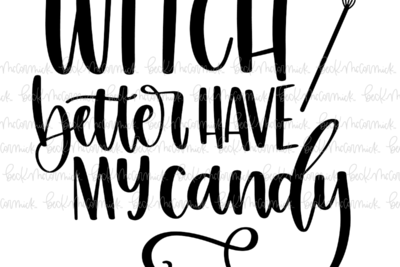 WITCH
better HAVE
MY candy